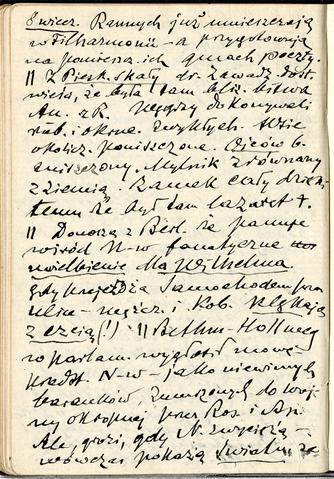 8 wiecz. Rannych już umieszczają
w Filharmonii - a przygotowują
na pomieszcz. ich gmach poczty.
|| Z Piesk. skały dr. Zawadz. dost.
wieść, że była tam bliz. bitwa
Au. z R. Węgrzy dokonywali
rab. i okruc. zwykłych. Wsie
okolicz. poniszczone. Ojców b.
zniszczony. Młynik zrównany
z ziemią. Zamek cały dzięki
temu że był tam lazaret +.
|| Donoszą z Berl. że panuje
wśród N-w fanatyczne
uwielbienie dla Wilhelma
gdy przejeżdża samochodem przez
ulice - mężcz. i kob. klękają
z czcią (!) || Bethm-Hollweg
w parlam. wygłosił mowę -
przedst. N-w - jako niewinnych
baranków, zmuszonych do wojny
ny okropnej przez Ros i An.
Ale, grozi, gdy N. zwyciężą -
wówczas pokażą światu, że